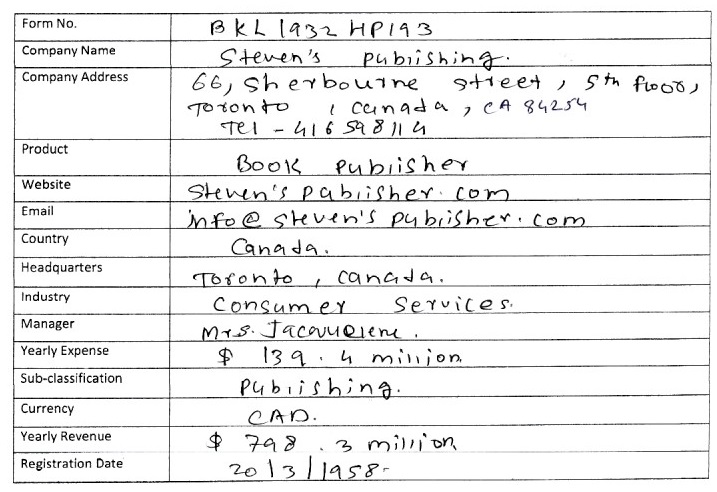 Form No. BKL 1932 HP193
Company Name Steven's publishing.
Company Address 66, Sherbourne street, 5th floor,
Toronto, Canada, CA 84254
Tel - 416 598114
Product Book publisher
Website Steven's publisher.com
Email info@steven's publisher.com
Country Canada.
Headquarters Toronto, Canada.
Industry Consumer Services.
Manager Mrs. Jacquelene.
Yearly Expense $ 139.4 million
Sub-classification Publishing.
Currency CAD.
Yearly Revenue $ 798.3 million
Registration Date 20/3/1958-